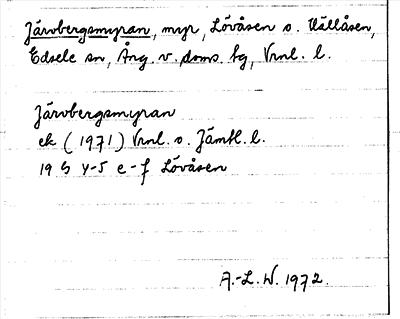 Järvbergsmyran, myr, Lövåsen o. Hällåsen,
Edsele sn, Ång. v. doms. hg, Vrnl. l.
Järvbergsmyran
ek (1971) Vrnl. o. Jämtl. l.
19 G 4-5 e-f Lövåsen
A.-L. W. 1972.